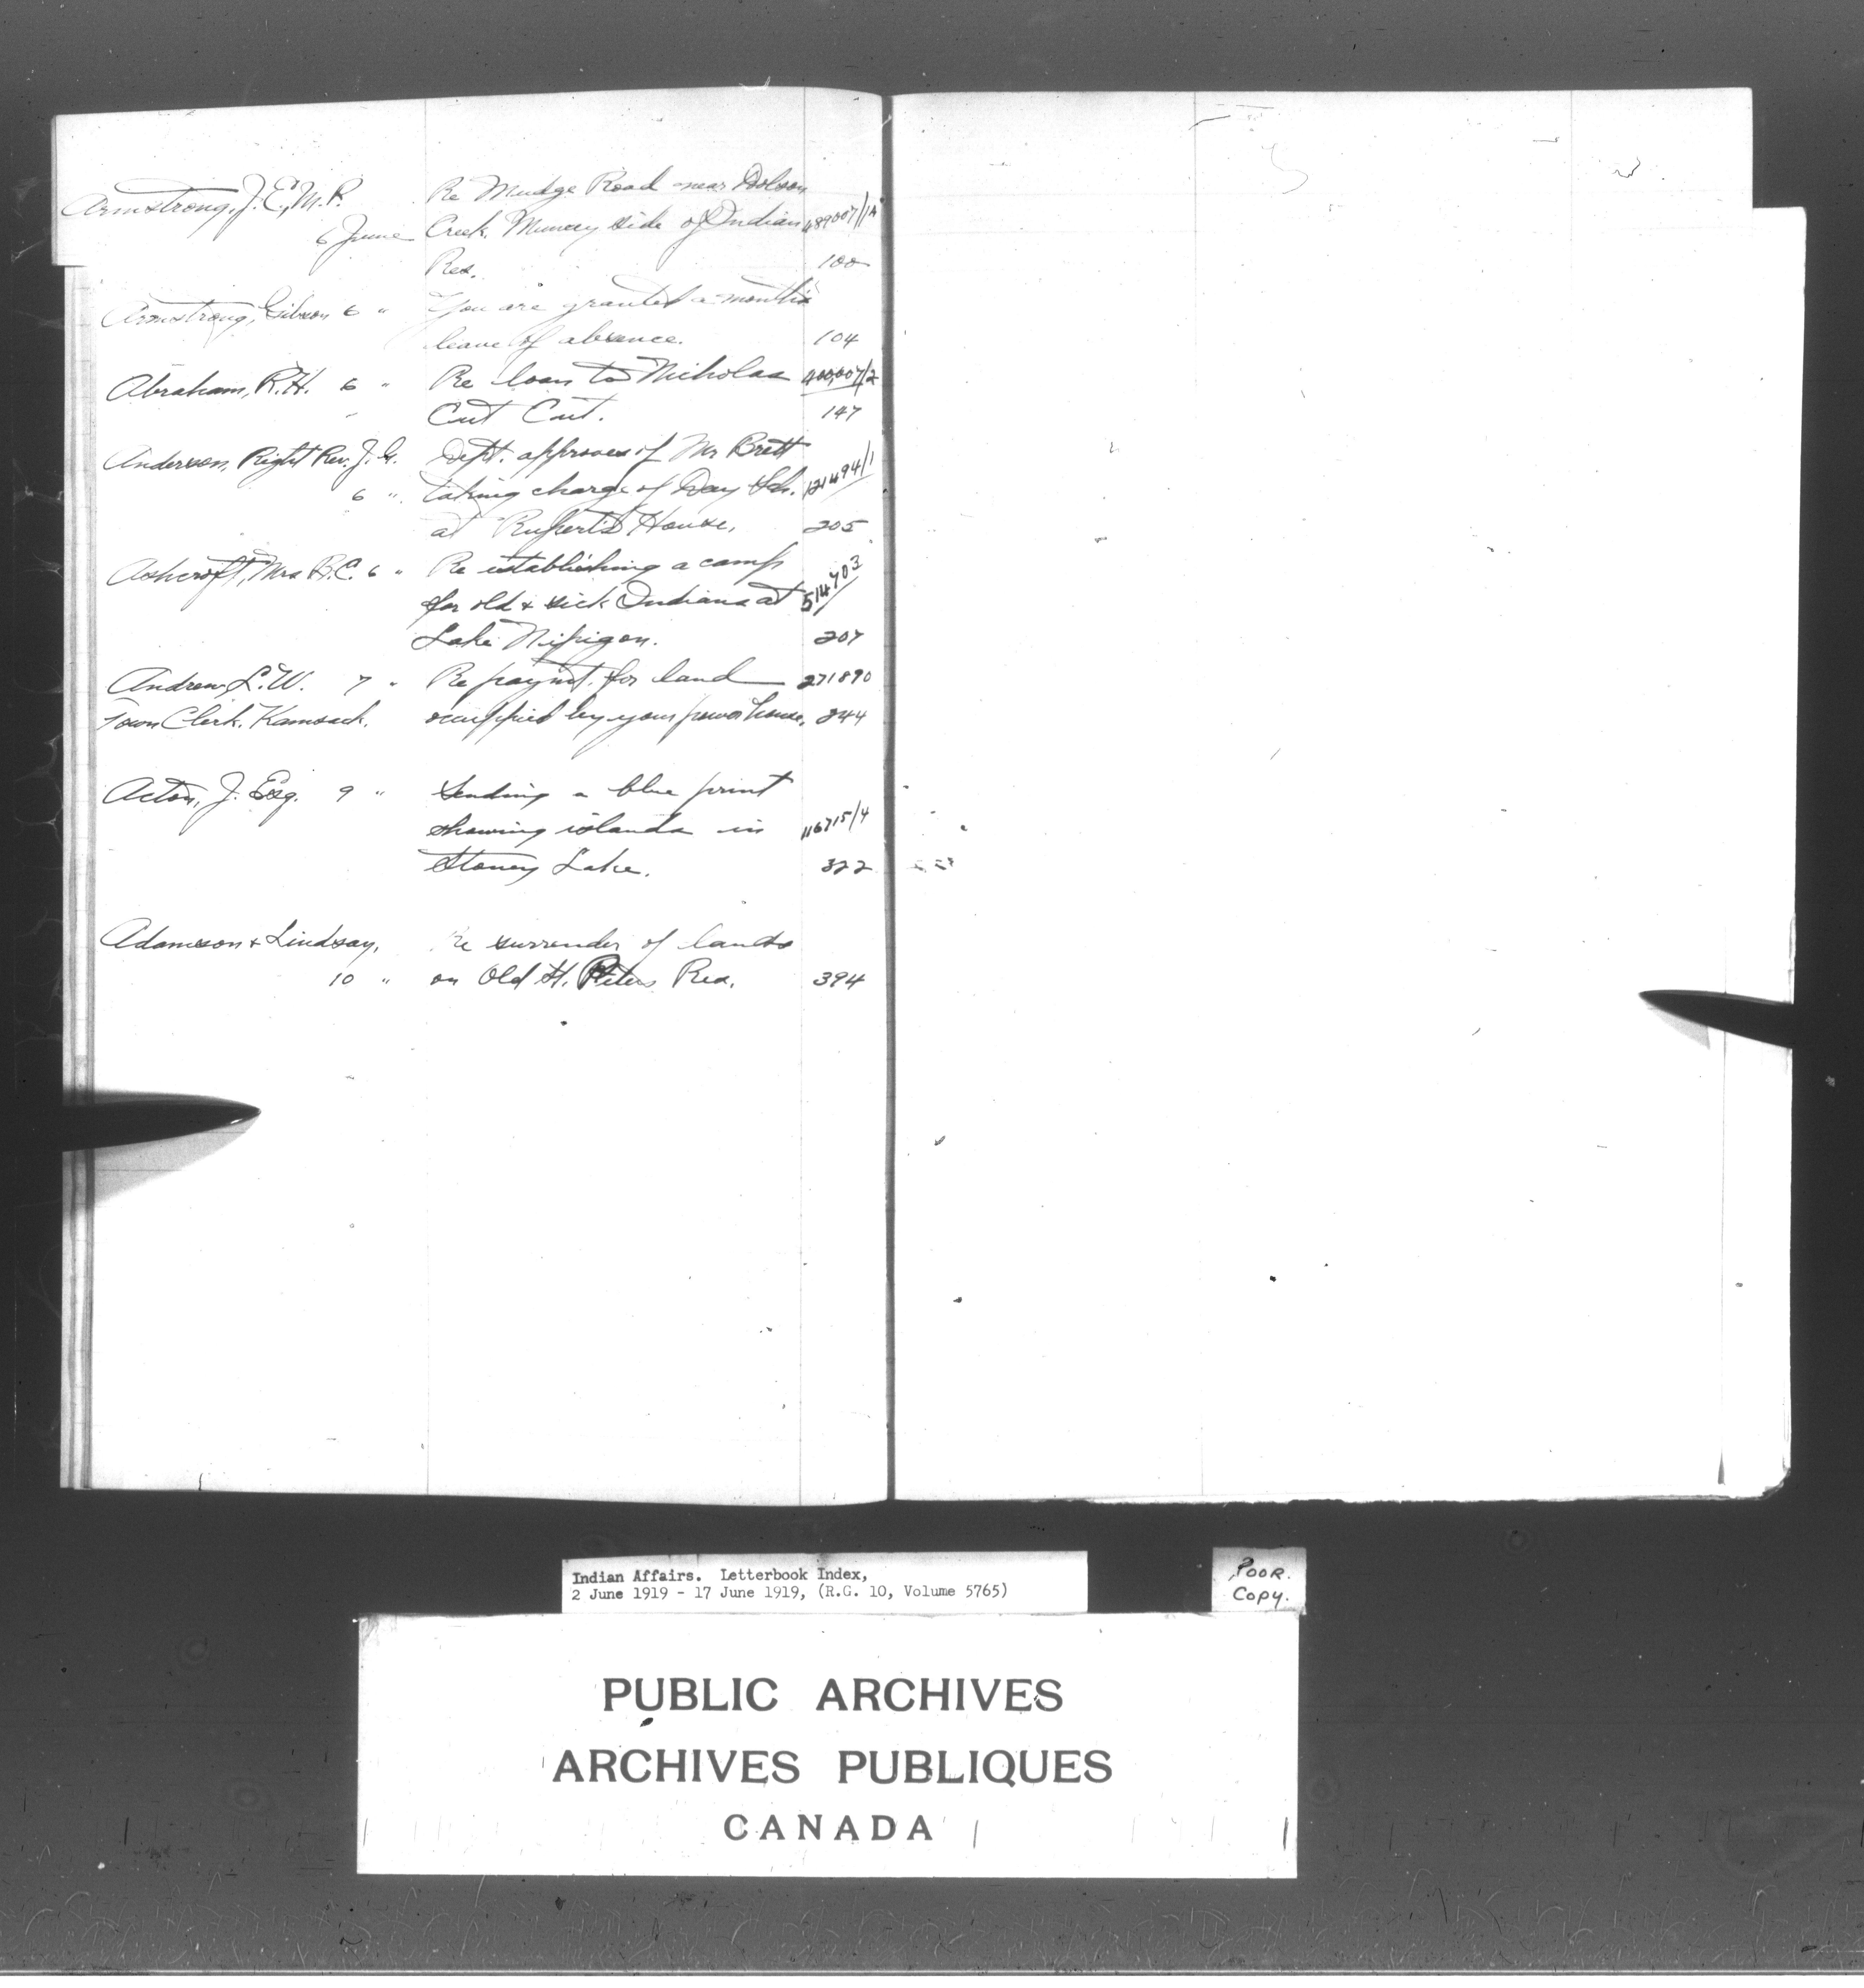 Armstrong, J. E., M.P. Re Mudge Road near Dolson
6 June Creek. Muncey side of Indian 489007/1A
Res. 100
Armstrong, Gibson 6 " You are granted a month's
leave of absence. 104
Abraham, R.H. 6 " Re loan to Nicholas 400,007/2
" Cut Cut. 147
Anderson, Right Rev. J. G. Dept. approves of Mr Brett
6 " taking charge of Day Sch. 121494/1
at Rupert's House. 205
Ashcroft, Mrs R.C. 6 " Re establishing a camp
for old & sick Indians at 514703
Lake Nipigon. 207
Andrew, L.W. 7 " Re paymt. for land 271890
Town Clerk. Kamsack. occupied by your power house. 244
Acton, J. Esq. 9 " Sending a blue print
showing islands in 116715/4
Stoney Lake. 322
Adamson & Lindsay, Re surrender of lands
10 " on Old St. Peters Res. 394
Indian Affairs. Letterbook Index,
2 June 1919 - 17 June 1919, (R.G. 10, Volume 5765)
POOR.
COPY.
PUBLIC ARCHIVES
ARCHIVES PUBLIQUES
CANADA